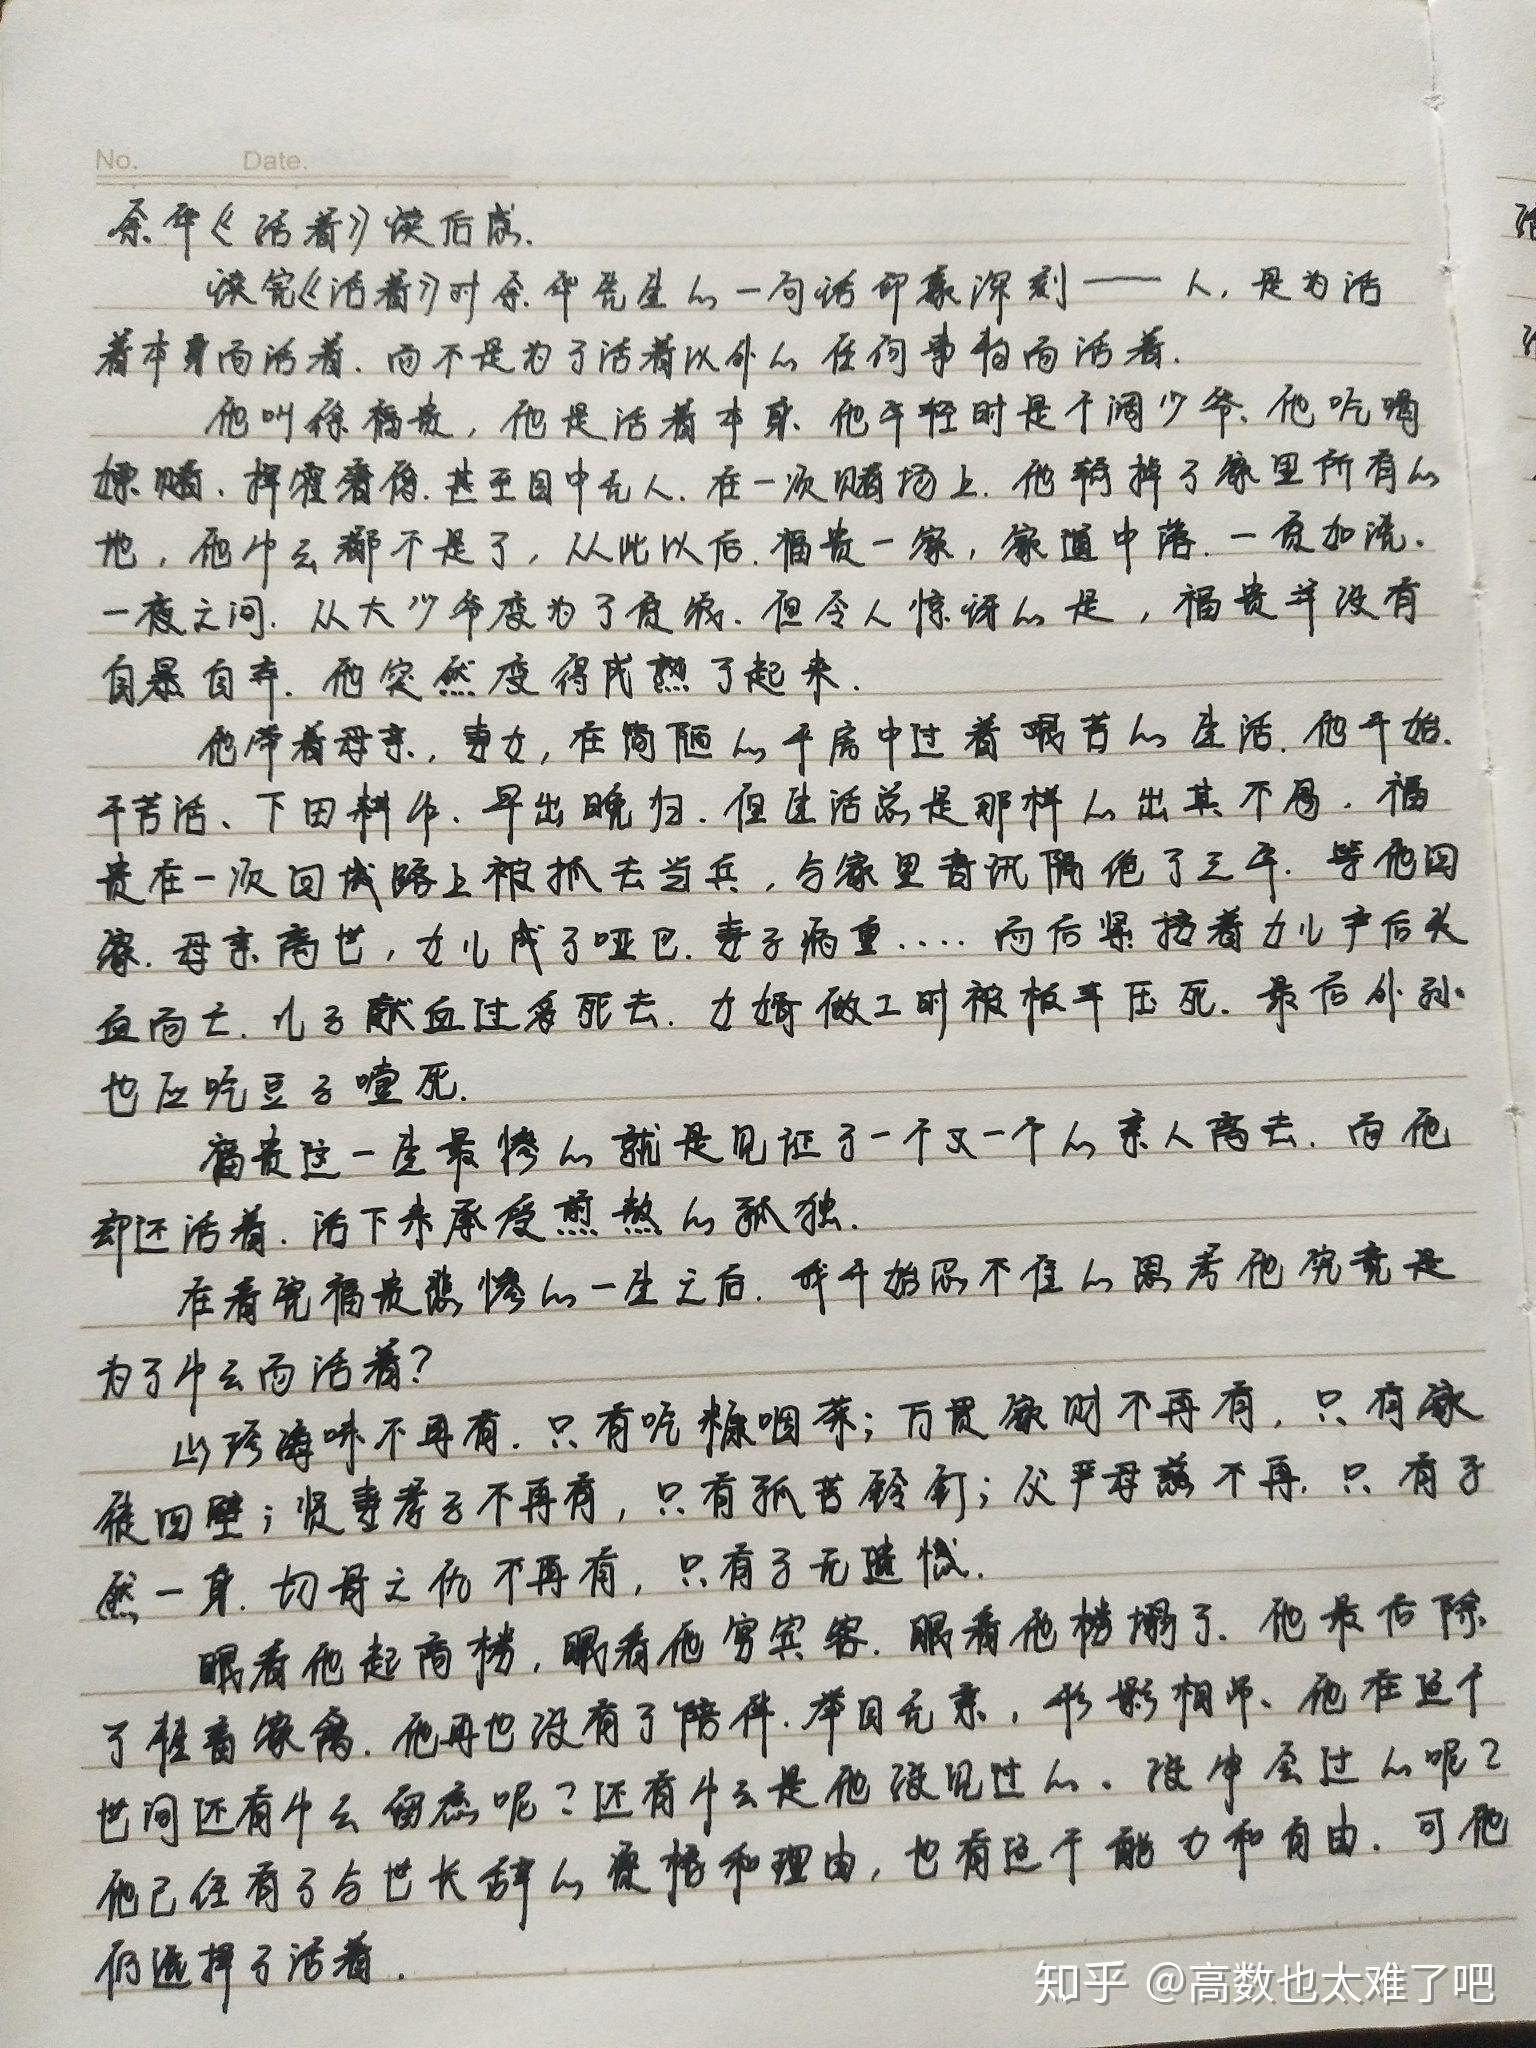 No. Date.
余华《活着》读后感.
读完《活着》对余华先生的一句话印象深刻——人,是为活
着本身而活着.而不是为了活着以外的任何事物而活着.
他叫徐福贵,他是活着本身.他年轻时是个阔少爷、他吃喝
嫖赌.挥霍奢侈.甚至目中无人.在一次赌场上.他输掉了家里所有的
地,他什么都不是了,从此以后.福贵一家,家道中落.一贫如洗.
一夜之间.从大少爷变为了贫农.但令人惊讶的是,福贵并没有
自暴自弃.他突然变得成熟了起来.
他带着母亲,妻女,在简陋的平房中过着艰苦的生活.他开始.
干苦活、下田耕作.早出晚归.但生活总是那样的出其不意.福
贵在一次回城路上被抓去当兵,与家里音讯隔绝了三年.等他回
家.母亲离世,女儿成了哑巴.妻子病重....而后紧接着女儿产后失
血而亡.儿子献血过多死去.女婿做工时被板车压死.最后外孙
也应吃豆子噎死.
福贵这一生最惨的就是见证了一个又一个的亲人离去.而他
却还活着.活下来承受煎熬的孤独.
在看完福贵悲惨的一生之后.我开始忍不住的思考他究竟是
为了什么而活着?
山珍海味不再有.只有吃糠咽菜;万贯家财不再有,只有家
徒四壁;贤妻孝子不再有,只有孤苦铃钉;父严母慈不再.只有孑
然一身.切骨之仇不再有,只有了无遗憾.
眼看他起高楼,眼看他宴宾客.眼看他楼塌了.他最后除
了牲畜家禽.他再也没有了陪伴.举目无亲,形影相吊、他在这个
世间还有什么留恋呢?还有什么是他没见过的.没体会过的呢?
他已经有了与世长辞的资格和理由,也有这个能力和自由.可他
仍选择了活着.
知乎 @高数也太难了吧